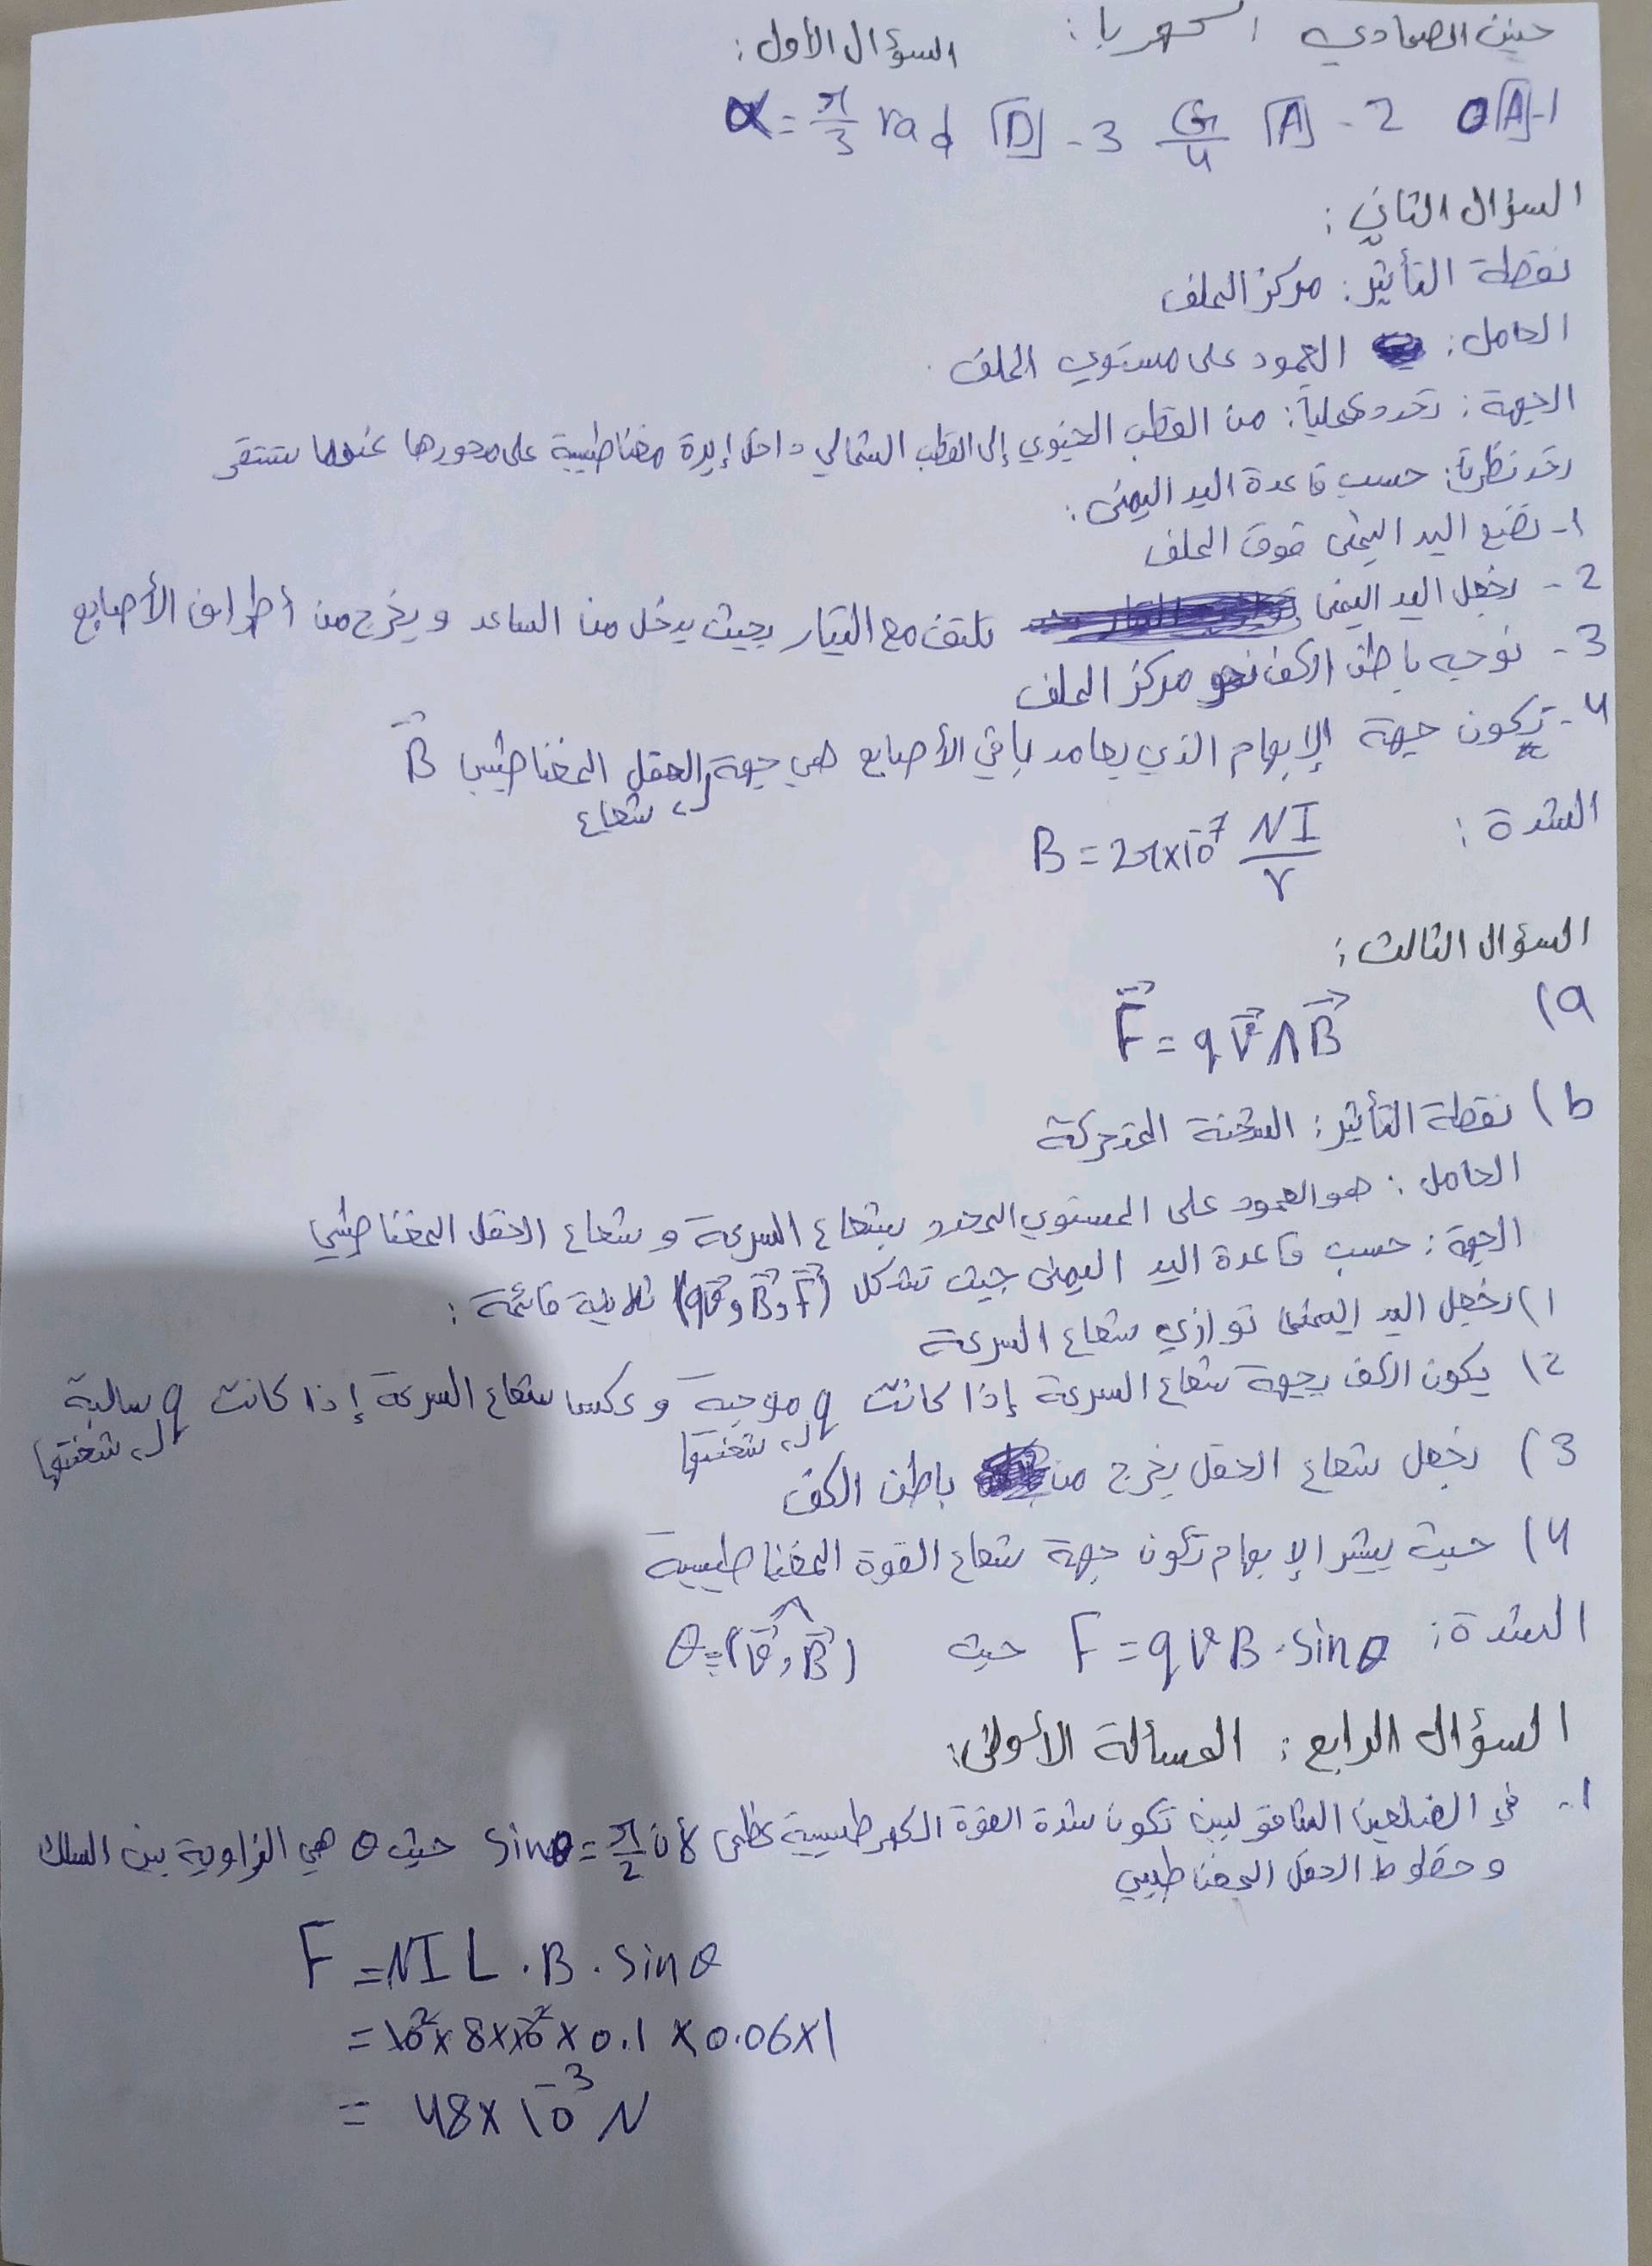 حنين الصمادي الكهربا:
السؤال الأول:
1- [A] 0 2- [A] G/4 3- [D] α = π/3 rad
السؤال الثاني:
نقطة التأثير: مركز الملف
الحامل: العمود على مستوي الملف.
الجهة: تحدد عملياً: من القطب الجنوبي إلى القطب الشمالي داخل إبرة مغناطيسية على محورها عندما تستقر
نظرياً: حسب قاعدة اليد اليمنى:
1- نضع اليد اليمنى فوق الملف
2- نجعل اليد اليمنى تلتف مع التيار بحيث يدخل من الساعد ويخرج من أطراف الأصابع
3- نوجه باطن الكف نحو مركز الملف
4- تكون جهة الإبهام الذي يعامد باقي الأصابع هي جهة الحقل المغناطيسي B⃗
شعاع
الشدة: B = 2π×10⁻⁷ NI/r
السؤال الثالث:
a) F⃗ = q v⃗ ∧ B⃗
b) نقطة التأثير: الشحنة المتحركة
الحامل: هو العمود على المستوي المحدد بشعاع السرعة و شعاع الحقل المغناطيسي
الجهة: حسب قاعدة اليد اليمنى حيث تشكل (qv⃗ و B⃗ و F⃗) ثلاثية قائمة:
1) نجعل اليد اليمنى توازي شعاع السرعة
2) يكون الكف بجهة شعاع السرعة إذا كانت q موجبة و عكس شعاع السرعة إذا كانت q سالبة
شحنتها شحنتها
3) نجعل شعاع الحقل يخرج من باطن الكف
4) حيث يشير الإبهام تكون جهة شعاع القوة المغناطيسية
الشدة: F = qvB . sinθ حيث θ = (v⃗, B⃗)
السؤال الرابع: المسألة الأولى:
1- في الضلعين الشاقوليين تكون شدة القوة الكهرطيسية عظمى لأن sinθ = π/2 حيث θ هي الزاوية بين السلك
و خطوط الحقل المغناطيسي
F = NIL . B . sinθ
= 10² × 8×10⁻² × 0.1 × 0.06×1
= 48×10⁻³ N